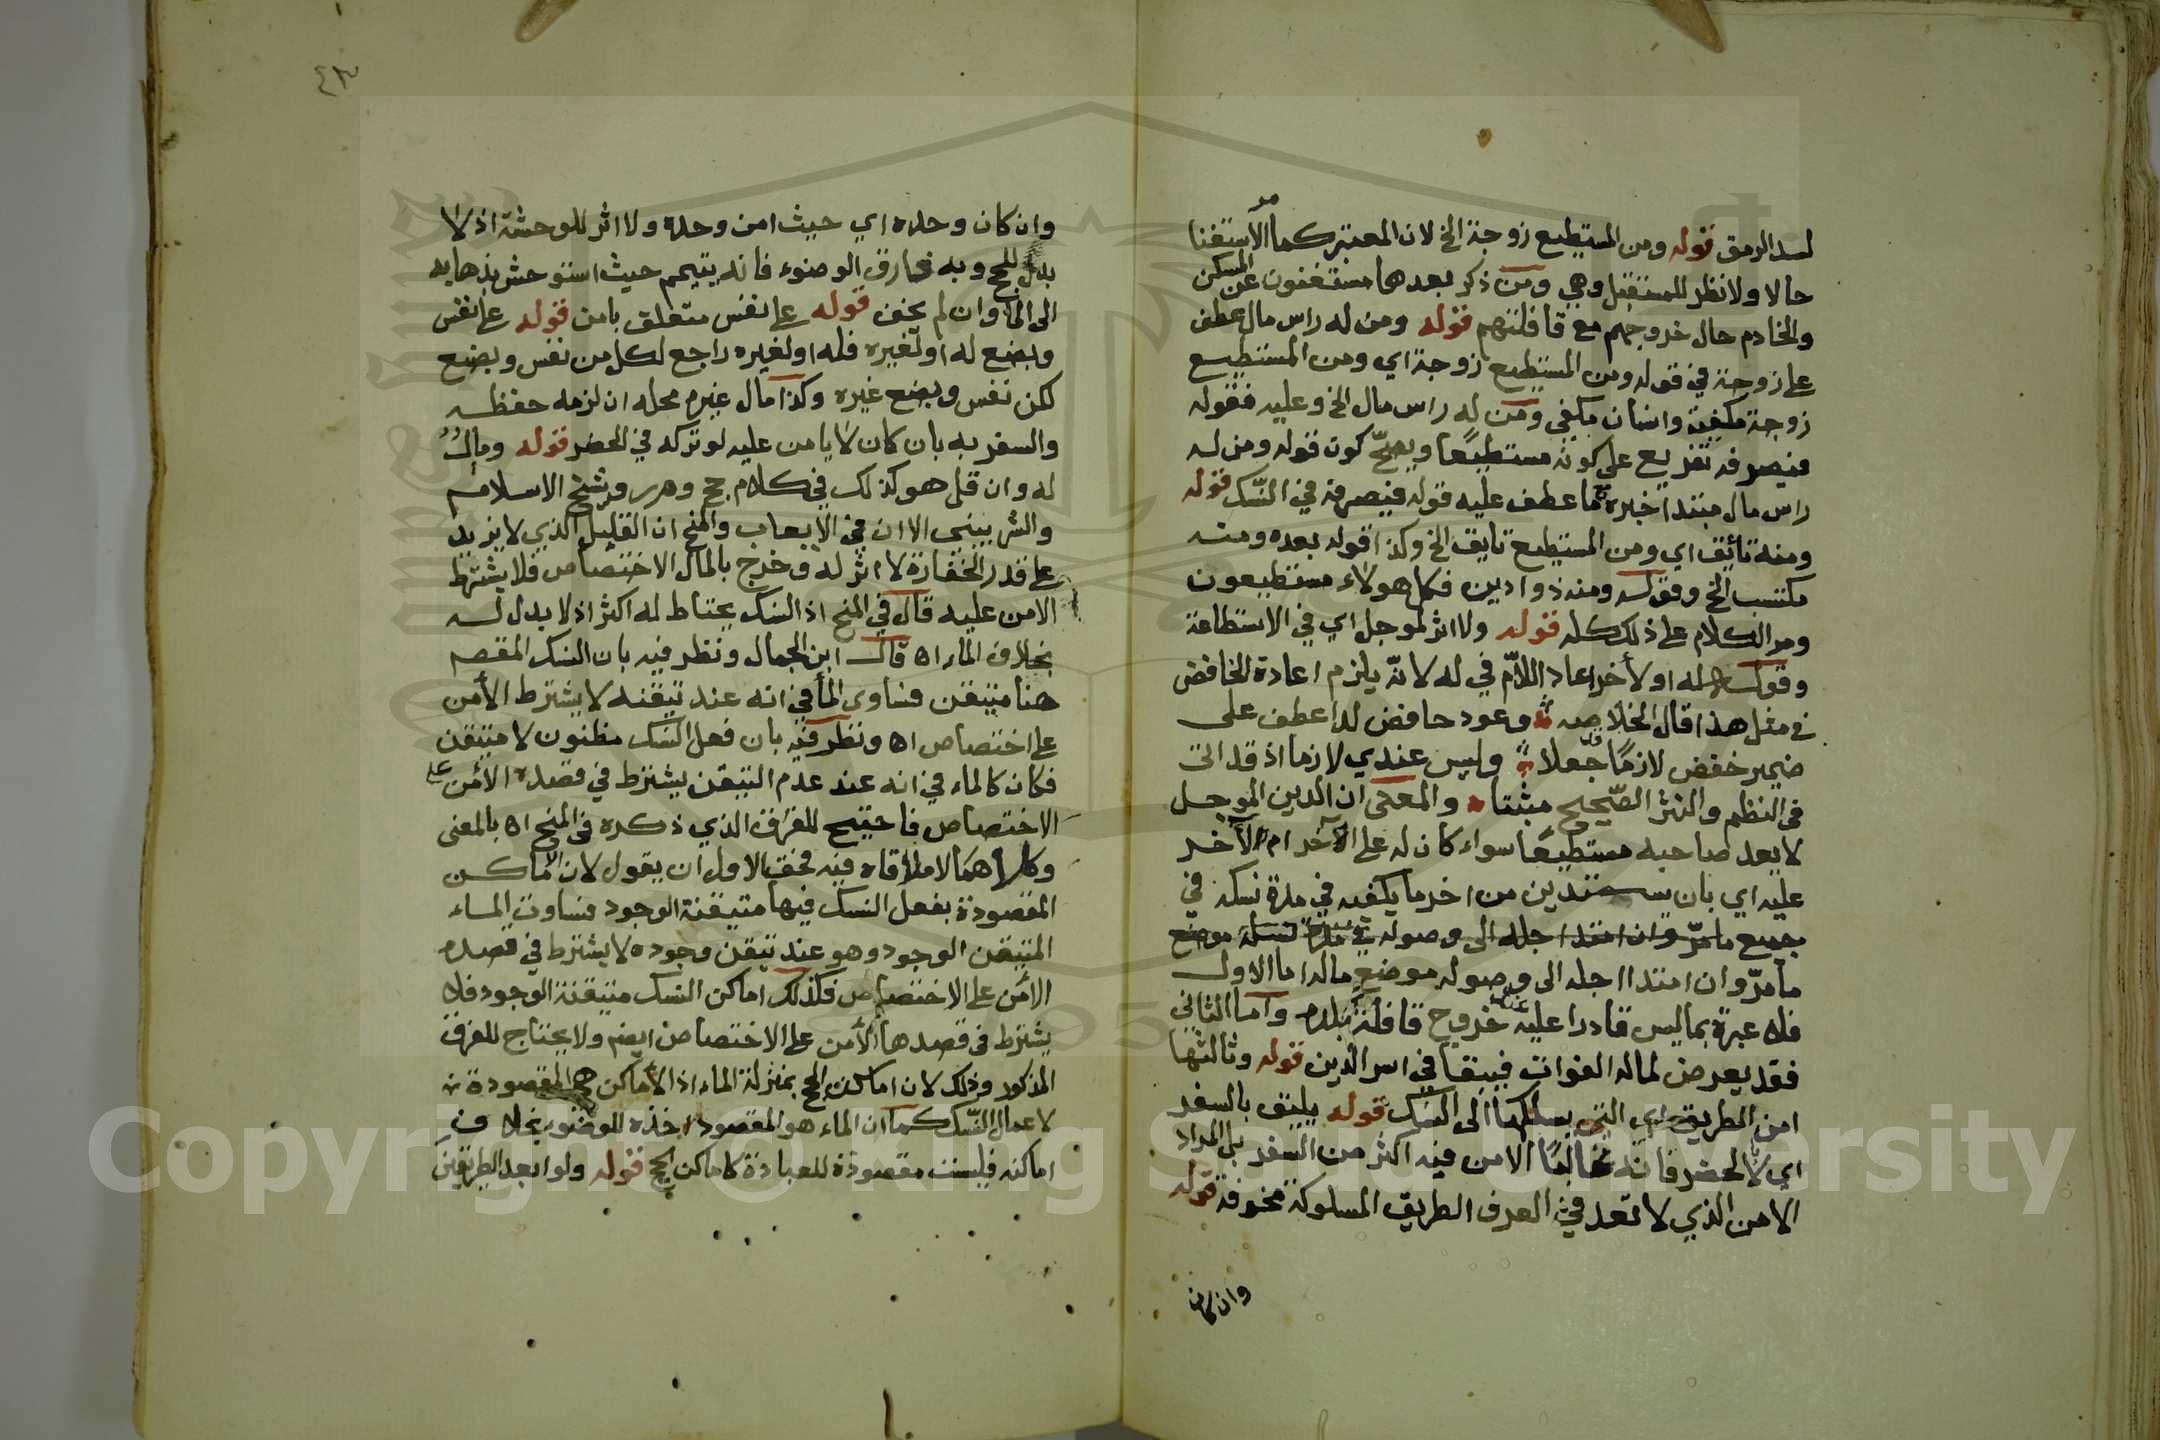 لسد الرمق قوله ومن المستطيع زوجة الخ لان المعتبر كما مر الاستغنا
حالا ولا نظر للمستقبل وهي ومن ذكر بعدها مستغنون عن المسكن
والخادم حال خروجهم مع قافلتهم قوله ومن له راس مال عطف
على زوجة في قوله ومن المستطيع زوجة اي ومن المستطيع
زوجة مكفية وانسان مكفي ومن له راس مال الخ وعليه فقوله
فيصرفه تفريع على كونه مستطيعًا ويصحّ كون قوله ومن له
راس مال مبتدا خبره ما عطف عليه قوله فيصرفه في النسك قوله
ومنه تائق اي ومن المستطيع تايق الخ وكذا قوله بعده ومنه
مكتسب الخ وقوله ومنه ذوا دين فكل هولاء مستطيعون
ومر الكلام على ذلك كله قوله ولا اثر لموجل اي في الاستطاعة
وقوله له او لأخر اعاد اللام في له لانّه يلزم اعادة الخافض
في مثل هذا قال الخلاصه وعود خافض لدا عطف على
ضمير خفض لازمًا قد جعلا وليس عندي لازما اذ قد اتى
في النظم والنثر الصّحيح مثبتا والمعنى ان الدين الموجل
لا يعد صاحبه مستطيعًا سواء كان له على الآخر ام الآخر
عليه اي بان يستدين من اخر ما يكفيه في مدة نسكه في
جميع ما مرّ وان امتد اجله الى وصوله في مدة نسكه موضع
ما مرّ وان امتدا اجله الى وصوله موضع ماله اما الاول
فلا عبرة بما ليس قادرا عليه عند خروج قافلة بلده واما الثاني
فقد يعرض لماله الفوات فيبقا في اسر الدين قوله وثالثها
امن الطريق اي التي يسلكها الى النسك قوله يليق بالسفر
اي لا الحضر فانه غالبًا الامن فيه اكثر من السفر بل المراد
الامن الذي لا تعد في العرف الطريق المسلوكة مخوفة قوله
وان كان
٤٣
وان كان وحده اي حيث امن وحده ولا اثر للوحشة اذ لا
بدل للحج وبه فارق الوضوء فانه يتيمم حيث استوحش بذهابه
الى الما وان لم يخف قوله على نفس متعلق بامن قوله على نفس
وبضع له او لغيره فله او لغيره راجع لكل من نفس وبضع
لكن نفس وبضع غيره وكذا مال غيره محله ان لزمه حفظه
والسفر به بان كان لا يامن عليه لو تركه في الحضر قوله ومال
له وان قل هو كذلك في كلام حج ومر وشيخ الاسلام
والشربيني الا ان في الايعاب والمنح ان القليل الذي لا يزيد
على قدر الخفارة لا اثر له وخرج بالمال الاختصاص فلا يشترط
الامن عليه قال في المنح اذ النسك يحتاط له اكثر اذ لا بدل له
بخلاف الماء اه قال ابن الجمال ونظر فيه بان النسك المقصم
هنا متيقن فساوى الما في انه عند تيقنه لا يشترط الأمن
على اختصاص اه ونظر فيه بان فعل النسك مظنون لا متيقن
فكان كالماء في انه عند عدم التيقن يشترط في قصده الأمن على
الاختصاص فاحتيج للفرق الذي ذكره في المنح اه بالمعنى
وكلاهما لا ملاقاه فيه فحق الاول ان يقول لان الاماكن
المقصودة بفعل النسك فيها متيقنة الوجود فساوت الماء
المتيقن الوجود وهو عند تيقن وجوده لا يشترط في قصده
الأمن على الاختصاص فكذلك اماكن النسك متيقنة الوجود فلا
يشترط في قصدها الأمن على الاختصاص ايضم ولا يحتاج للفرق
المذكور وذلك لان اماكن الحج بمنزلة الماء اذ الأماكن هي المقصودة
لاعمال النّسك كما ان الماء هو المقصود اخذه للوضوء بخلاف
اماكنه فليست مقصودة للعبادة كاماكن الحج قوله ولو ابعد الطريقين
Copyright © King Saud University